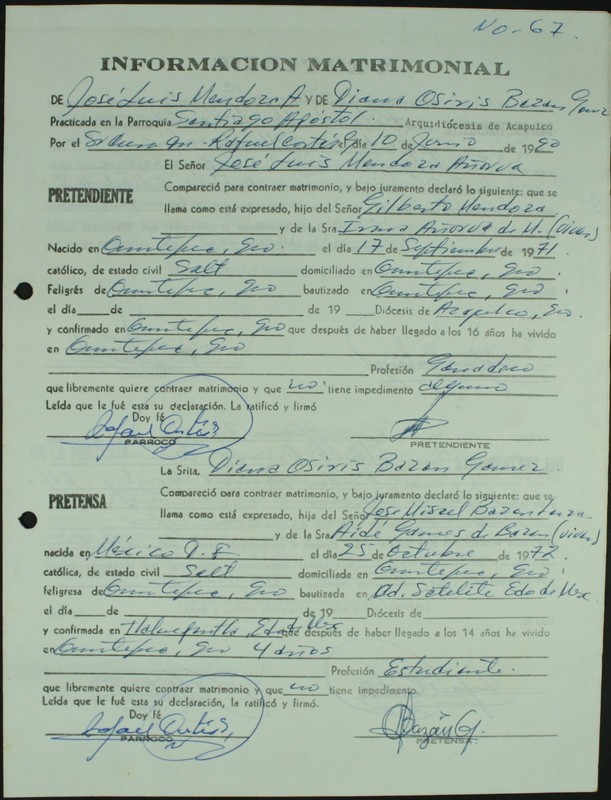 No-67.
INFORMACION MATRIMONIAL
DE José Luis Mendoza A Y DE Diana Osiris Bazan Gomez
Practicada en la Parroquia Santiago Apóstol. Arquidiócesis de Acapulco
Por el Sr. Rafael Cortés el día 10 de Junio de 1990
El Señor José Luis Mendoza Añorva
PRETENDIENTE
Compareció para contraer matrimonio, y bajo juramento declaró lo siguiente: que se
llama como está expresado, hijo del Señor Gilberto Mendoza
y de la Sra Irma Añorva de M. (viven)
Nacido en Cuautepec, Gro. el día 17 de Septiembre de 1971
católico, de estado civil Solt domiciliado en Cuautepec, Gro.
Feligrés de Cuautepec, Gro bautizado en Cuautepec, Gro.
el día de de 19 Diócesis de Acapulco, Gro.
y confirmado en Cuautepec, Gro que después de haber llegado a los 16 años ha vivido
en Cuautepec, Gro
Profesión Ganadero
que libremente quiere contraer matrimonio y que no tiene impedimento alguno
Leída que le fué esta su declaración. La ratificó y firmó
Doy fé
Rafael Cortés
PARROCO PRETENDIENTE
La Srita. Diana Osiris Bazan Gomez
PRETENSA
Compareció para contraer matrimonio, y bajo juramento declaró lo siguiente: que se
llama como está expresado, hija del Señor José Misael Bazan
y de la Sra Aidé Gomes de Bazan (viven)
nacida en México D.F. el día 25 de Octubre de 1972
católica, de estado civil Solt domiciliada en Cuautepec, Gro.
feligresa de Cuautepec, Gro bautizada en Cd. Satélite Edo de Mex.
el día de de 19 Diócesis de
y confirmada en Tlalnepantla, Edo. Mex que después de haber llegado a los 14 años ha vivido
en Cuautepec, Gro 4 años
Profesión Estudiante.
que libremente quiere contraer matrimonio y que no tiene impedimento.
Leída que le fué esta su declaración, la ratificó y firmó.
Doy fé
Rafael Cortés
Bazán G.
PARROCO PRETENSA